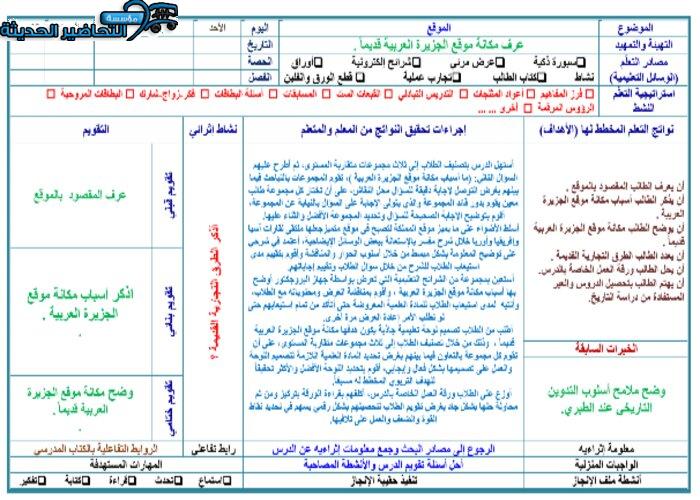 مؤسسة
التحاضير الحديثة
الموضوع
الموقع
اليوم
الأحد
التهيئة والتمهيد
عرف مكانة موقع الجزيرة العربية قديماً .
التاريخ
مصادر التعلم
(الوسائل التعليمية)
سبورة ذكية عرض مرئى شرائح الكترونية أوراق
نشاط كتاب الطالب تجارب عملية قطع الورق والفلين
الحصة
الفصل
استراتيجية التعلم
النشط
فرز المفاهيم اعواد المثلجات التدريس التبادلي القبعات الست المسابقات أسئلة البطاقات فكر-زواج-شارك البطاقات المروحية
الرؤوس المرقمة أخرى ... ...
نواتج التعلم المخطط لها (الأهداف)
إجراءات تحقيق النواتج من المعلم والمتعلم
نشاط اثرائي
التقويم
أن يعرف الطالب المقصود بالموقع .
أن يذكر الطالب أسباب مكانة موقع الجزيرة
العربية .
أن يوضح الطالب مكانة موقع الجزيرة العربية
قديماً .
أن يعدد الطالب الطرق التجارية القديمة .
أن يحل الطالب ورقة العمل الخاصة بالدرس.
أن يهتم الطالب بتحصيل الدروس والعبر
المستفادة من دراسة التاريخ.
الخبرات السابقة
وضح ملامح أسلوب التدوين
التاريخى عند الطبري.
أستهل الدرس بتصنيف الطلاب إلى ثلاث مجموعات متقاربة المستوى، ثم أطرح عليهم
السؤال التالي: (ما أسباب مكانة موقع الجزيرة العربية )، تقوم المجموعات بالتباحث فيما
بينهم بغرض التوصل لإجابة دقيقة للسؤال محل النقاش، على أن تختار كل مجموعة طالب
معين يقوم بدور قائد المجموعة والذي يتولى الإجابة على السؤال بالنيابة عن المجموعة،
أقوم بتوضيح الإجابة الصحيحة للسؤال وتحديد المجموعة الأفضل والثناء عليها.
أسلط الأضواء على ما يميز موقع المملكة لتصبح في موقع متميز جعلها ملتقى لقارات آسيا
وإفريقيا وأوربا خلال شرح مفسر بالإستعانة ببعض الوسائل الإيضاحية، أعتمد في شرحي
على توضيح المعلومة بشكل مبسط من خلال أسلوب الحوار والمناقشة وأقوم بتفهم مدى
استيعاب الطلاب للشرح من خلال سؤال الطلاب وتقييم إجاباتهم.
أستعين بمجموعة من الشرائح التعليمية التي تعرض بوسطة جهاز البروجكتور أوضح
بها أسباب مكانة موقع الجزيرة العربية ، وأقوم بمناقشة العرض ومحتوياته مع الطلاب،
وأنتبه لمدى استيعاب الطلاب للمادة العلمية المعروضة حتى أتأكد من تمام استيعابهم حتى
لو تطلب الأمر إعادة العرض مرة أخرى.
أطلب من الطلاب تصميم لوحة تعليمية جاذبة يكون هدفها مكانة موقع الجزيرة العربية
قديماً ، وذلك من خلال تصنيف الطلاب إلى ثلاث مجموعات متقاربة المستوى، على أن
تقوم كل مجموعة بالتعاون فيما بينهم بغرض تحديد المادة العلمية اللازمة لتصميم اللوحة
والعمل على تصميمها بشكل فعال وإيجابي، أقوم بتحديد اللوحة الأفضل والأكثر تحقيقاً
للهدف التربوي المخطط له مسبقاً.
أوزع على الطلاب ورقة العمل الخاصة بالدرس، أكلفهم بقراءة الورقة بتركيز ومن ثم
محاولة حلها بشكل جاد بغرض تقويم الطلاب لتحصيلهم بشكل رقمي يسهم في تحديد نقاط
القوة والضعف والعمل على تلافيها.
أذكر الطرق التجارية القديمة ؟
تقويم قبلي
عرف المقصود بالموقع
تقويم بنائي
أذكر أسباب مكانة موقع
الجزيرة العربية .
.
تقويم ختامي
وضح مكانة موقع الجزيرة
العربية قديماً .
معلومة إثرائية
الرجوع الى مصادر البحث وجمع معلومات إثرائيه عن الدرس
رابط تفاعلي
الروابط التفاعلية بالكتاب المدرسي
الواجبات المنزلية
أحل أسئلة تقويم الدرس والأنشطة المصاحبة
المهارات المستهدفة
أنشطة ملف الإنجاز
تنفيذ حقيبة الإنجاز
استماع تحدث قراءة كتابة تفكير